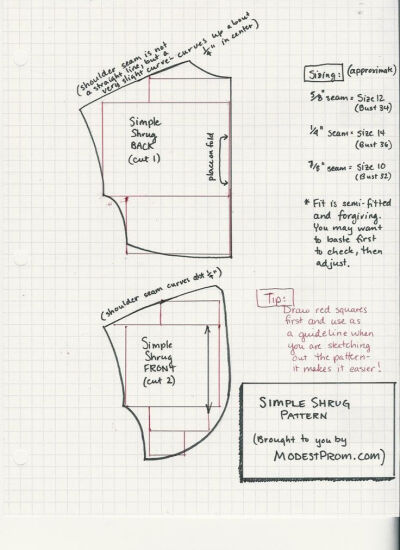 (shoulder seam is not
a straight line, but a
very slight curve. curves up about
1/4" in center)
Simple
Shrug
BACK
(cut 1)
place on fold
Sizing: (approximate)
5/8" seam = Size 12
(Bust 34)
1/4" seam = Size 14
(Bust 36)
7/8" seam = Size 10
(Bust 32)
* Fit is semi-fitted
and forgiving.
You may want
to baste first
to check, then
adjust.
(shoulder seam curves abt 1/4")
Simple
Shrug
FRONT
(cut 2)
Tip:
Draw red squares
first and use as
a guideline when
you are sketching
out the pattern-
it makes it easier!
SIMPLE SHRUG
PATTERN
(Brought to you by
MODESTPROM.com)